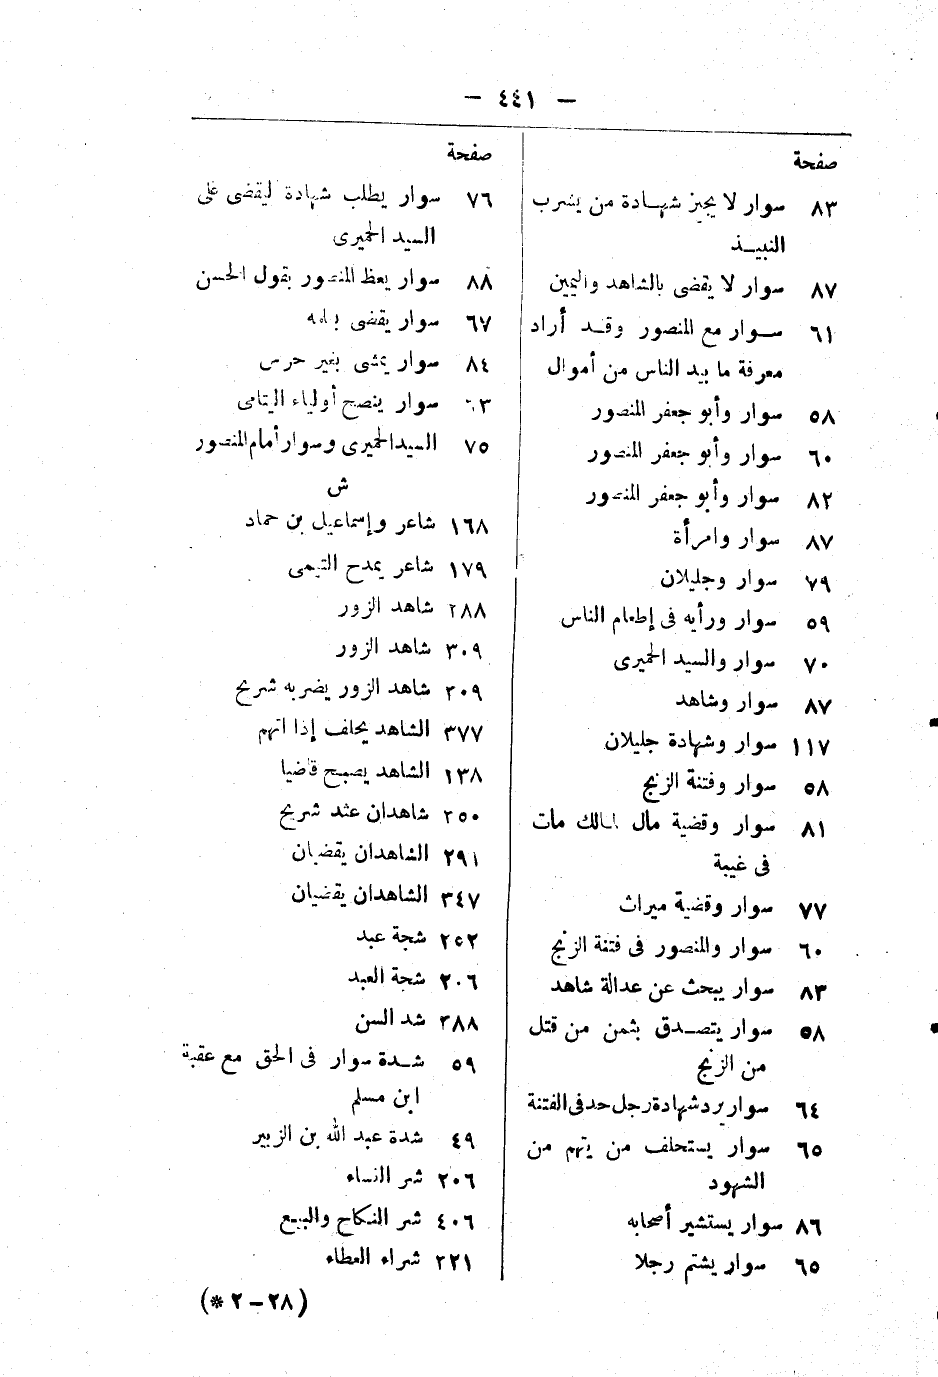 — ٤٤١ —
صفحة
٨٣ سوار لا يجيز شهادة من يشرب
النبيذ
٨٧ سوار لا يقضى بالشاهد واليمين
٦١ سوار مع المنصور وقد أراد
معرفة ما بيد الناس من أموال
٥٨ سوار وأبو جعفر المنصور
٦٠ سوار وأبو جعفر المنصور
٨٢ سوار وأبو جعفر المنصور
٨٧ سوار وامرأة
٧٩ سوار وجليلان
٥٩ سوار ورأيه فى إطعام الناس
٧٠ سوار والسيد الحميرى
٨٧ سوار وشاهد
١١٧ سوار وشهادة جليلان
٥٨ سوار وفتنة الزنج
٨١ سوار وقضية مال لمالك مات
فى غيبة
٧٧ سوار وقضية ميراث
٦٠ سوار والمنصور فى فتنة الزنج
٨٣ سوار يبحث عن عدالة شاهد
٥٨ سوار يتصدق بثمن من قتل
من الزنج
٦٤ سوار يرد شهادة رجل حد فى الفتنة
٦٥ سوار يستحلف من يتهم من
الشهود
٨٦ سوار يستشير أصحابه
٦٥ سوار يشتم رجلا
صفحة
٧٦ سوار يطلب شهادة ليقضى على
السيد الحميرى
٨٨ سوار يعظ المنصور بقول الحسن
٦٧ سوار يقضى بعلمه
٨٤ سوار يمشى بغير حرس
٦٣ سوار ينصح أولياء اليتامى
٧٥ السيد الحميرى وسوار أمام المنصور
ش
١٦٨ شاعر وإسماعيل بن حماد
١٧٩ شاعر يمدح التيمى
٢٨٨ شاهد الزور
٣٠٩ شاهد الزور
٢٠٩ شاهد الزور يضربه شريح
٣٧٧ الشاهد يحلف إذا اتهم
١٣٨ الشاهد يصبح قاضيا
٢٥٠ شاهدان عند شريح
٢٩١ الشاهدان يقضيان
٣٤٧ الشاهدان يقضيان
٢٥٢ شجة عبد
٢٠٦ شجة العبد
٣٨٨ شد السن
٥٩ شدة سوار فى الحق مع عقبة
ابن مسلم
٤٩ شدة عبد الله بن الزبير
٢٠٦ شر النساء
٤٠٦ شر النكاح والبيع
٢٢١ شراء العطاء
(٢٨ – ٢ *)